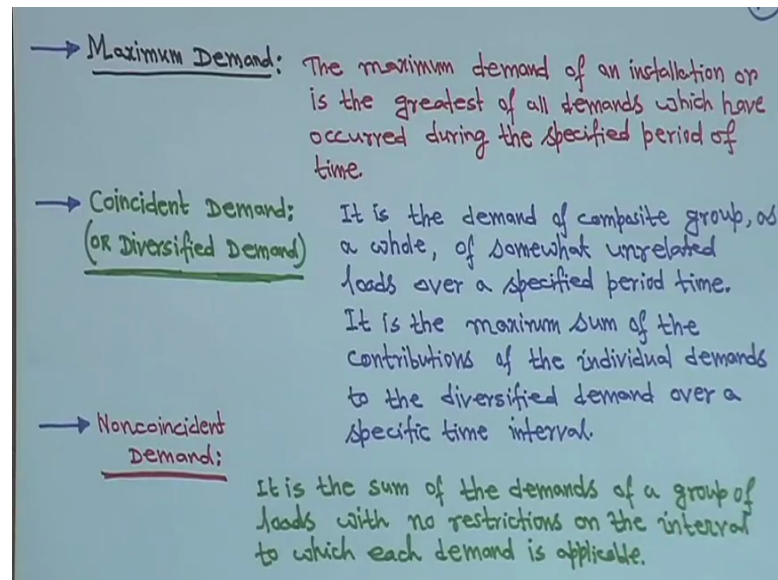 Maximum Demand: The maximum demand of an installation or
is the greatest of all demands which have
occurred during the specified period of
time.
Coincident Demand: It is the demand of composite group, as
(OR Diversified Demand) a whole, of somewhat unrelated
loads over a specified period time.
It is the maximum sum of the
contributions of the individual demands
to the diversified demand over a
specific time interval.
Noncoincident
Demand:
It is the sum of the demands of a group of
loads with no restrictions on the interval
to which each demand is applicable.